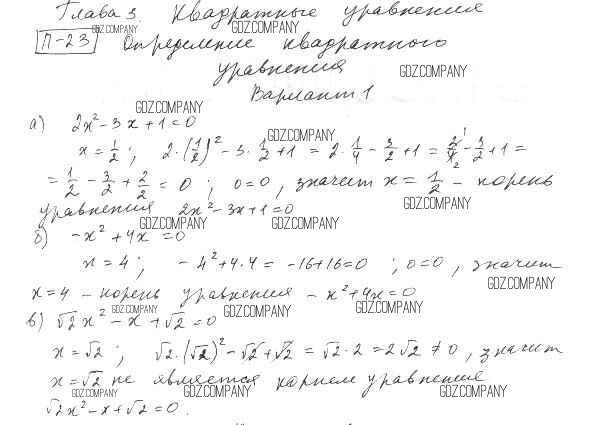 Глава 3. Квадратные уравнения
GDZ.COMPANY GDZ.COMPANY
П-23 Определение квадратного
уравнения GDZ.COMPANY
Вариант 1
GDZ.COMPANY
а) 2x² - 3x + 1 = 0
GDZ.COMPANY
x = 1/2; 2·(1/2)² - 3·1/2 + 1 = 2·1/4 - 3/2 + 1 = 2¹/4₂ - 3/2 + 1 =
= 1/2 - 3/2 + 2/2 = 0; 0=0, значит x = 1/2 - корень
GDZ.COMPANY
уравнения 2x² - 3x + 1 = 0
GDZ.COMPANY GDZ.COMPANY
б) -x² + 4x = 0
x = 4; -4² + 4·4 = -16+16=0; 0=0, значит
GDZ.COMPANY
x=4 - корень уравнения -x² + 4x = 0
GDZ.COMPANY GDZ.COMPANY GDZ.COMPANY
в) √2x² - x + √2 = 0
x = √2; √2·(√2)² - √2 + √2 = √2·2 = 2√2 ≠ 0, значит
x = √2 не является корнем уравнения
GDZ.COMPANY GDZ.COMPANY GDZ.COMPANY
√2x² - x + √2 = 0.